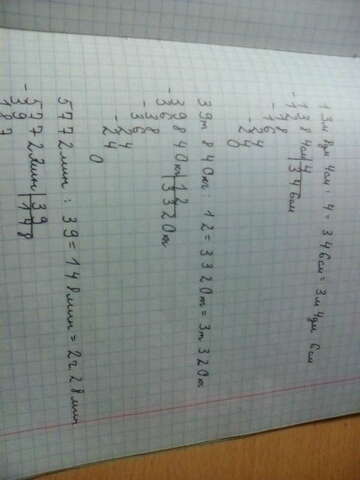 13м 8дм 4см : 4 = 346см = 3м 4дм 6см
-1384см|4
12 346см
-18
16
-24
24
0
39т 840кг : 12 = 3320кг = 3т 320кг
-39840кг|12
36 3320кг
-38
36
-24
24
0
5772мин : 39 = 148мин = 2ч 28мин
-5772мин|39
39 148
187